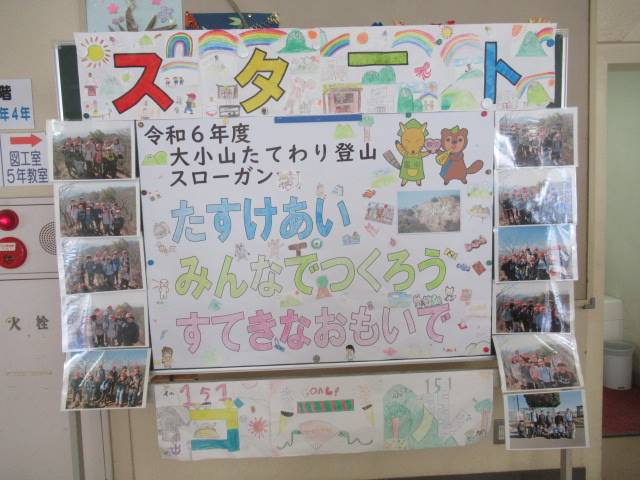 スタート
階
年4年
図工室
5年教室
令和6年度
大小山たてわり登山
スローガン
たすけあい
みんなでつくろう
すてきなおもいで
火栓
151
151